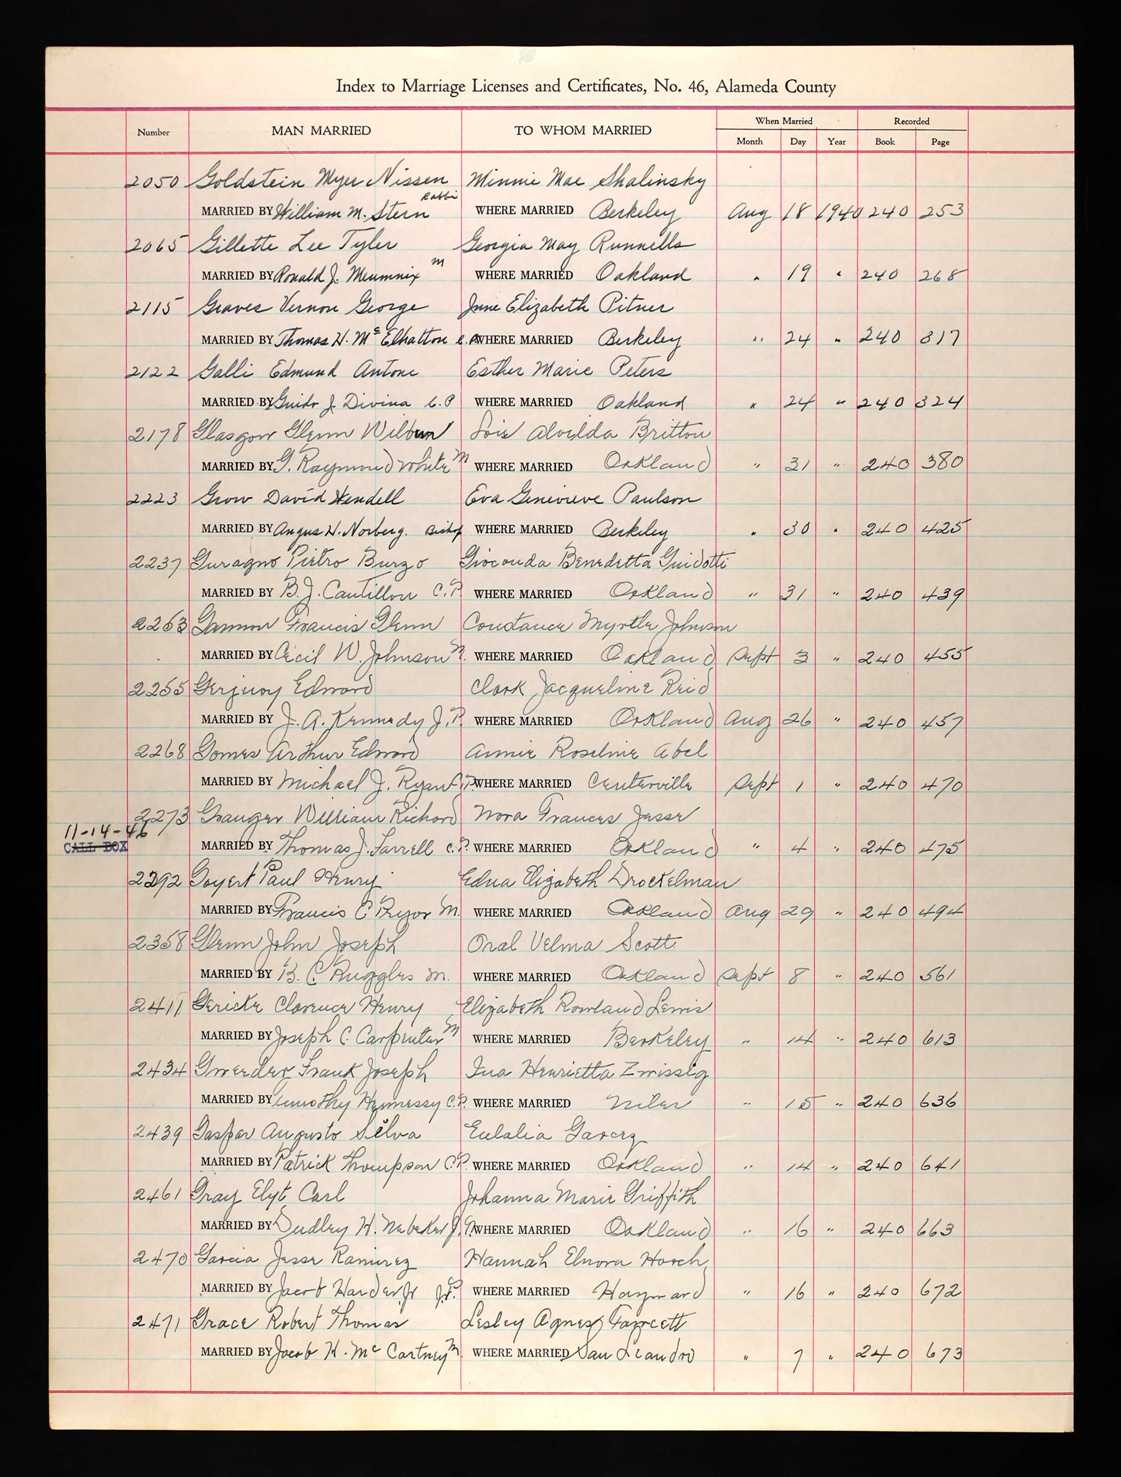 Index to Marriage Licenses and Certificates, No. 46, Alameda County
Number MAN MARRIED TO WHOM MARRIED When Married Recorded
Month Day Year Book Page
2050 Goldstein Myer Nissen Minnie Mae Shalinsky
MARRIED BY William M. Stern Rabbi WHERE MARRIED Berkeley Aug 18 1940 240 253
2065 Gillette Lee Tyler Georgia May Runnells
MARRIED BY Ronald J. Meumnix M WHERE MARRIED Oakland " 19 " 240 268
2115 Graves Vernon George June Elizabeth Pitner
MARRIED BY Thomas H. McElhatton C.P. WHERE MARRIED Berkeley " 24 " 240 317
2122 Galli Edmund Antone Esther Marie Peters
MARRIED BY Guido J. Divina C.P WHERE MARRIED Oakland " 24 " 240 324
2178 Glasgow Glenn Wilburn Lois Alvilda Britton
MARRIED BY G. Raymond White M WHERE MARRIED Oakland " 31 " 240 380
2223 Grow David Wendell Eva Genevieve Paulson
MARRIED BY Angus H. Norberg. Bishop WHERE MARRIED Berkeley " 30 " 240 425
2237 Guragno Pietro Burzo Gioconda Benedetta Guidotti
MARRIED BY B. J. Cantillon C.P. WHERE MARRIED Oakland " 31 " 240 439
2253 Gannon Francis Glenn Constance Myrtle Johnson
MARRIED BY Cecil W. Johnson M. WHERE MARRIED Oakland Sept 3 " 240 455
2255 Gerjuoy Edward Clark Jacqueline Reid
MARRIED BY J. A. Kennedy J.P. WHERE MARRIED Oakland Aug 26 " 240 457
2268 Gomes Arthur Edward Annie Roseline Abel
MARRIED BY Michael J. Ryan C.P. WHERE MARRIED Centerville Sept 1 " 240 470
2273 Granger William Richard Nora Frances Jesse
11-14-46
CALL BOX MARRIED BY Thomas J. Farrell C.P. WHERE MARRIED Oakland " 4 " 240 475
2292 Goyert Paul Henry Edna Elizabeth Drockelman
MARRIED BY Francis C Pryor M. WHERE MARRIED Oakland Aug 29 " 240 494
2358 Glenn John Joseph Oral Velma Scott
MARRIED BY B. C. Ruggles M. WHERE MARRIED Oakland Sept 8 " 240 561
2411 Gericke Clarence Henry Elizabeth Rowland Lewis
MARRIED BY Joseph C. Carpenter M WHERE MARRIED Berkeley " 14 " 240 613
2434 Gwerder Frank Joseph Ina Henrietta Zwissig
MARRIED BY Timothy Hennessy C.P. WHERE MARRIED Niles " 15 " 240 636
2439 Gaspar Augusto Silva Eulalia Garcez
MARRIED BY Patrick Thompson C.P. WHERE MARRIED Oakland " 14 " 240 641
2461 Gray Elyt Carl Johanna Marie Griffith
MARRIED BY Dudley H. Nebeker J.P. WHERE MARRIED Oakland " 16 " 240 663
2470 Garcia Jesse Ramirez Hannah Elnora Horch
MARRIED BY Jacob Harder Jr J.P. WHERE MARRIED Hayward " 16 " 240 672
2471 Grace Robert Thomas Lesley Agnes Fawcett
MARRIED BY Jacob K. McCartney M WHERE MARRIED San Leandro " 7 " 240 673